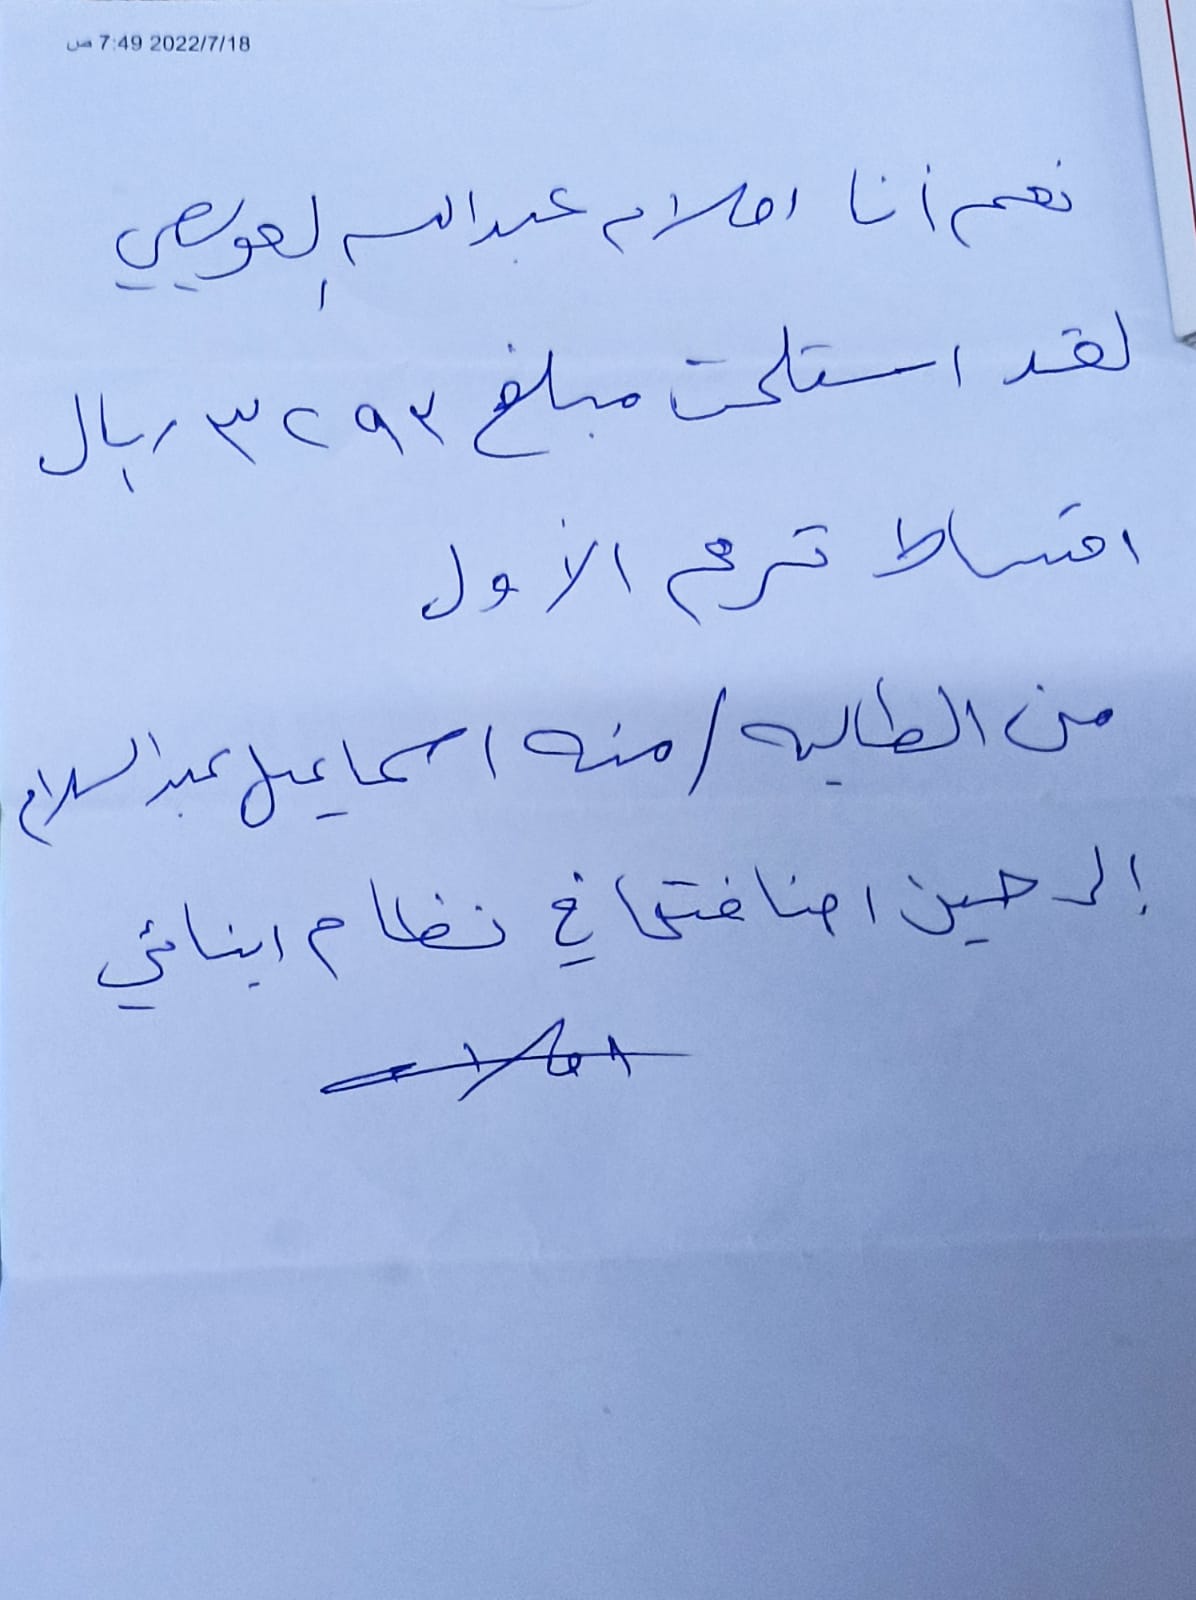 2022/7/18 7:49 ص
نعم أنا احلام عبدالله العويصي
لقد استلمت مبلغ ٣٢٩٣ ريال
اقساط ترم الأول
من الطالبه / منه اسماعيل عبدالسلام
إلى حين اضافتها في نظام ابنائي
احلام